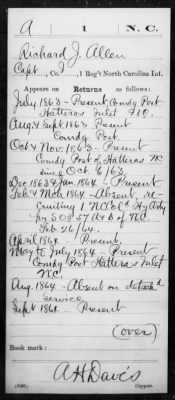 A 1 N.C.
Richard J. Allen
Capt, Co. I, 1 Reg't North Carolina Inf.
Appears on
Returns as follows:
July 1863 - Present, Comdg Post
Hatteras Inlet N.C.
Aug & Sept 1863 Present
Comdg Post.
Oct & Nov. 1863 - Present
Comdg Post of Hatteras NC
since Oct 6/63.
Dec 1863 & Jan 1864 - Present
Feb & Mch 1864 - Absent, re-
cruiting 1 N.C.
per S O # 57 A & D of N.C.
Feb. 26/64.
April 1864 - Present.
May to July 1864 - Present
Comdg Post Hatteras Inlet
N.C.
Aug. 1864 - Absent on detach'd
service
Sept 1864 - Present
(over)
Book mark:
A H Davis
(546) Copyist.